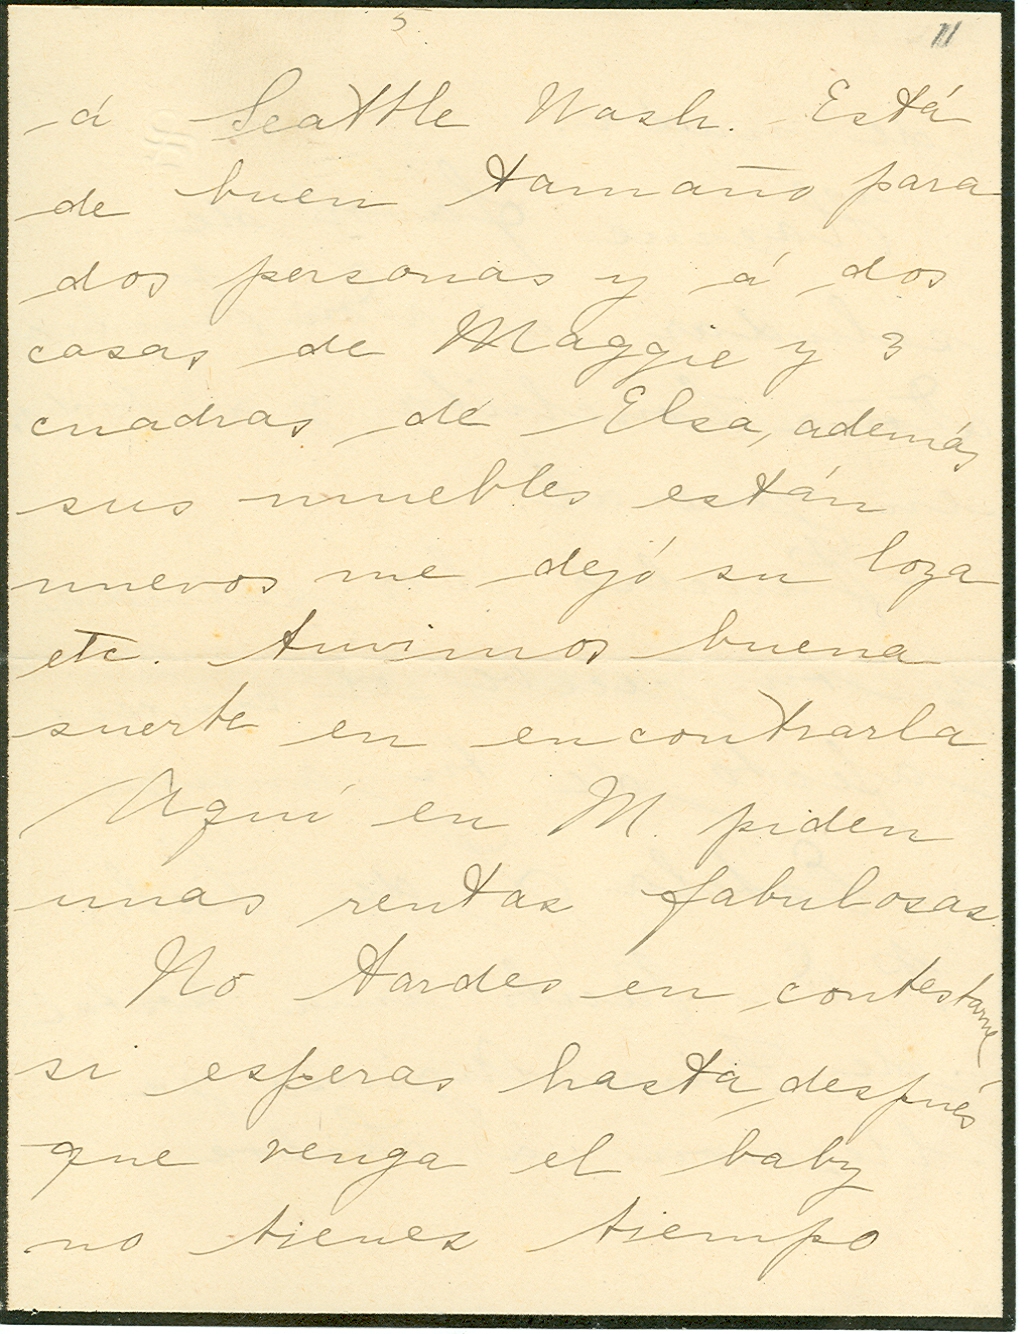 5
11
á Seattle Wash. Está
de buen tamaño para
dos personas y á dos
casas de Maggie y 3
cuadras de Elsa, además
sus muebles están
nuevos me dejó su loza
etc. Tuvimos buena
suerte en encontrarla.
Aquí en M. piden
unas rentas fabulosas.
No tardes en contestarme
si esperas hasta después
que venga el baby
no tienes tiempo